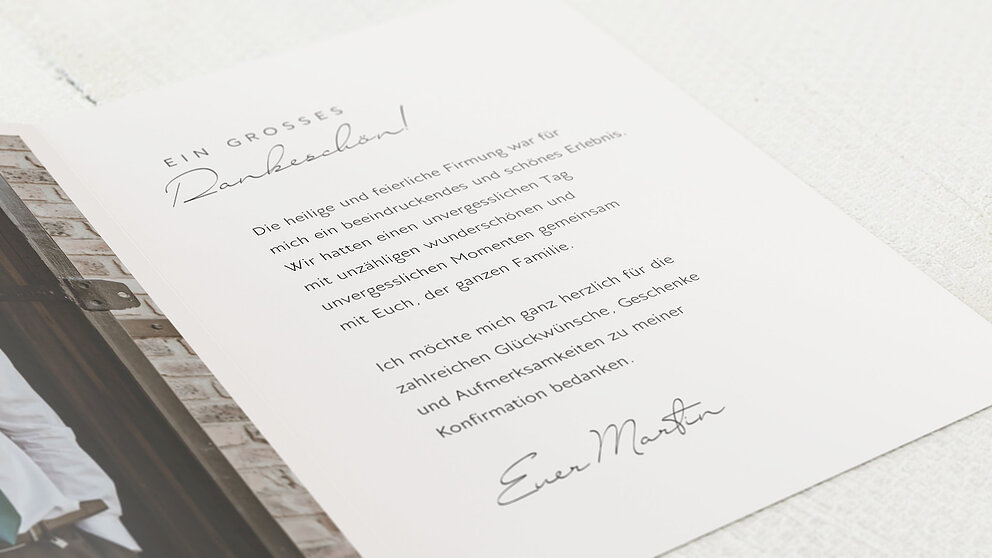 EIN GROSSES
Dankeschön!
Die heilige und feierliche Firmung war für
mich ein beeindruckendes und schönes Erlebnis.
Wir hatten einen unvergesslichen Tag
mit unzähligen wunderschönen und
unvergesslichen Momenten gemeinsam
mit Euch, der ganzen Familie.
Ich möchte mich ganz herzlich für die
zahlreichen Glückwünsche, Geschenke
und Aufmerksamkeiten zu meiner
Konfirmation bedanken.
Euer Martin